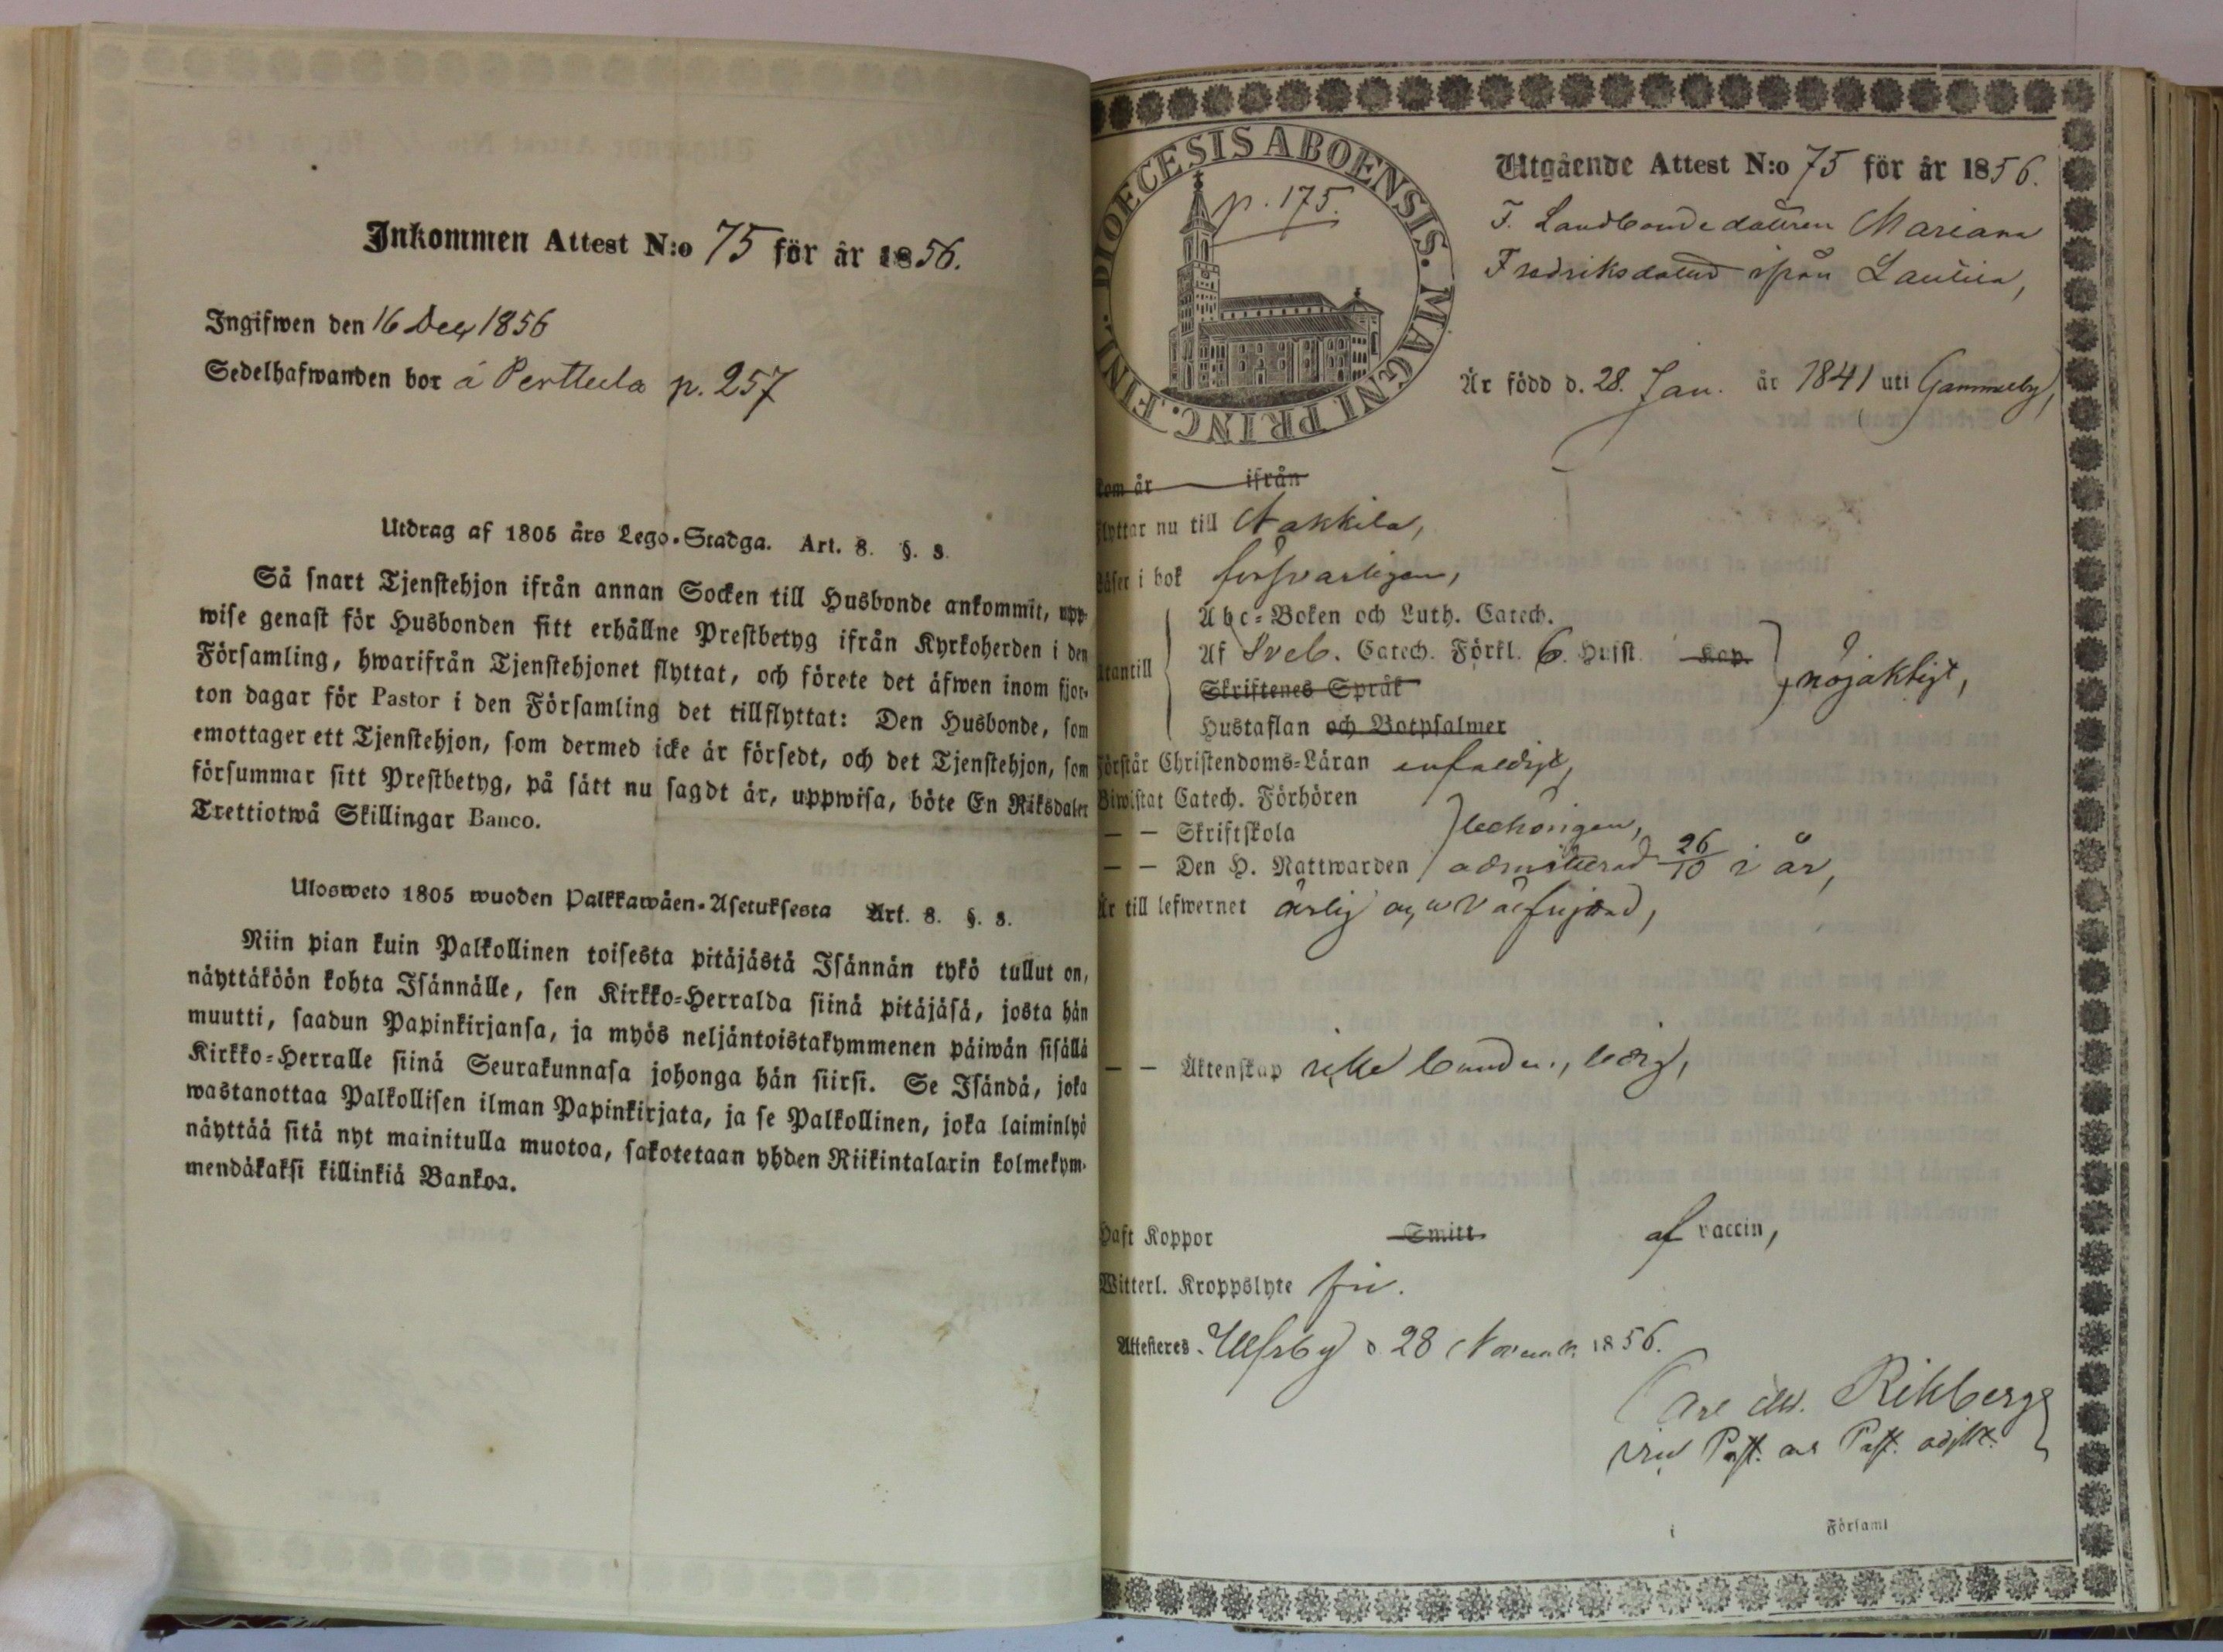 Inkommen Attest N:o 75 för år 1856.
Ingifwen den 16 Dec 1856
Sedelhafwanden bor å Perttula p. 257
Utdrag af 1805 års Lego-Stadga. Art. 8. §. 3.
Så snart Tjenstehjon ifrån annan Socken till Husbonde ankommit, upp-
wise genast för Husbonden sitt erhållne Prestbetyg ifrån Kyrkoherden i den
Församling, hwarifrån Tjenstehjonet flyttat, och förete det äfwen inom fjor-
ton dagar för Pastor i den Församling det tillflyttat: Den Husbonde, som
emottager ett Tjenstehjon, som dermed icke är försedt, och det Tjenstehjon, som
försummar sitt Prestbetyg, på sätt nu sagdt är, uppwisa, böte En Riksdaler
Trettiotwå Skillingar Banco.
Ulosweto 1805 wuoden Palkkawäen-Asetuksesta Art. 8. §. 3.
Niin pian kuin Palkollinen toisesta pitäjästä Isännän tykö tullut on,
näyttäköön kohta Isännälle, sen Kirkko-Herralda siinä pitäjäsä, josta hän
muutti, saadun Papinkirjansa, ja myös neljäntoistakymmenen päiwän sisällä
Kirkko-Herralle siinä Seurakunnasa johonga hän siirsi. Se Isändä, joka
wastanottaa Palkollisen ilman Papinkirjata, ja se Palkollinen, joka laiminlyö
näyttää sitä nyt mainitulla muotoa, sakotetaan yhden Riikintalarin kolmekym-
mendäkaksi killinkiä Bankoa.
DIOECESIS ABOENSIS. MAGNI PRINC. FINL.
p. 175.
Utgående Attest N:o 75 för år 1856.
F. Landbondedottren Mariana
Fredriksdotter ifrån
Är född d. 28. Jan. år 1841 uti Gammelby,
kom år ifrån
flyttar nu till Nakkila,
Läser i bok försvarligen,
Abc-Boken och Luth. Catech.
utantill Af Sveb. Catech. Förkl. 6. Hufst. Kap. nöjaktigt,
Skriftenes Språk
Hustaflan och Botpsalmer
Förstår Christendoms-Läran enfaldigt,
Biwistat Catech. Förhören
— — Skriftskola behörigen,
— — Den H. Nattwarden admitterad 26/10 i år,
Är till lefwernet ärlig och välfrejdad,
— — Äktenskap icke bunden, ledig,
Haft Koppor Smitt af vaccin,
Witterl. Kroppslyte fri.
Attesteres. Ulfsby d. 28 Novemb. 1856.
Carl Rikberg
vice Past. Past. adjkt.
i Församl